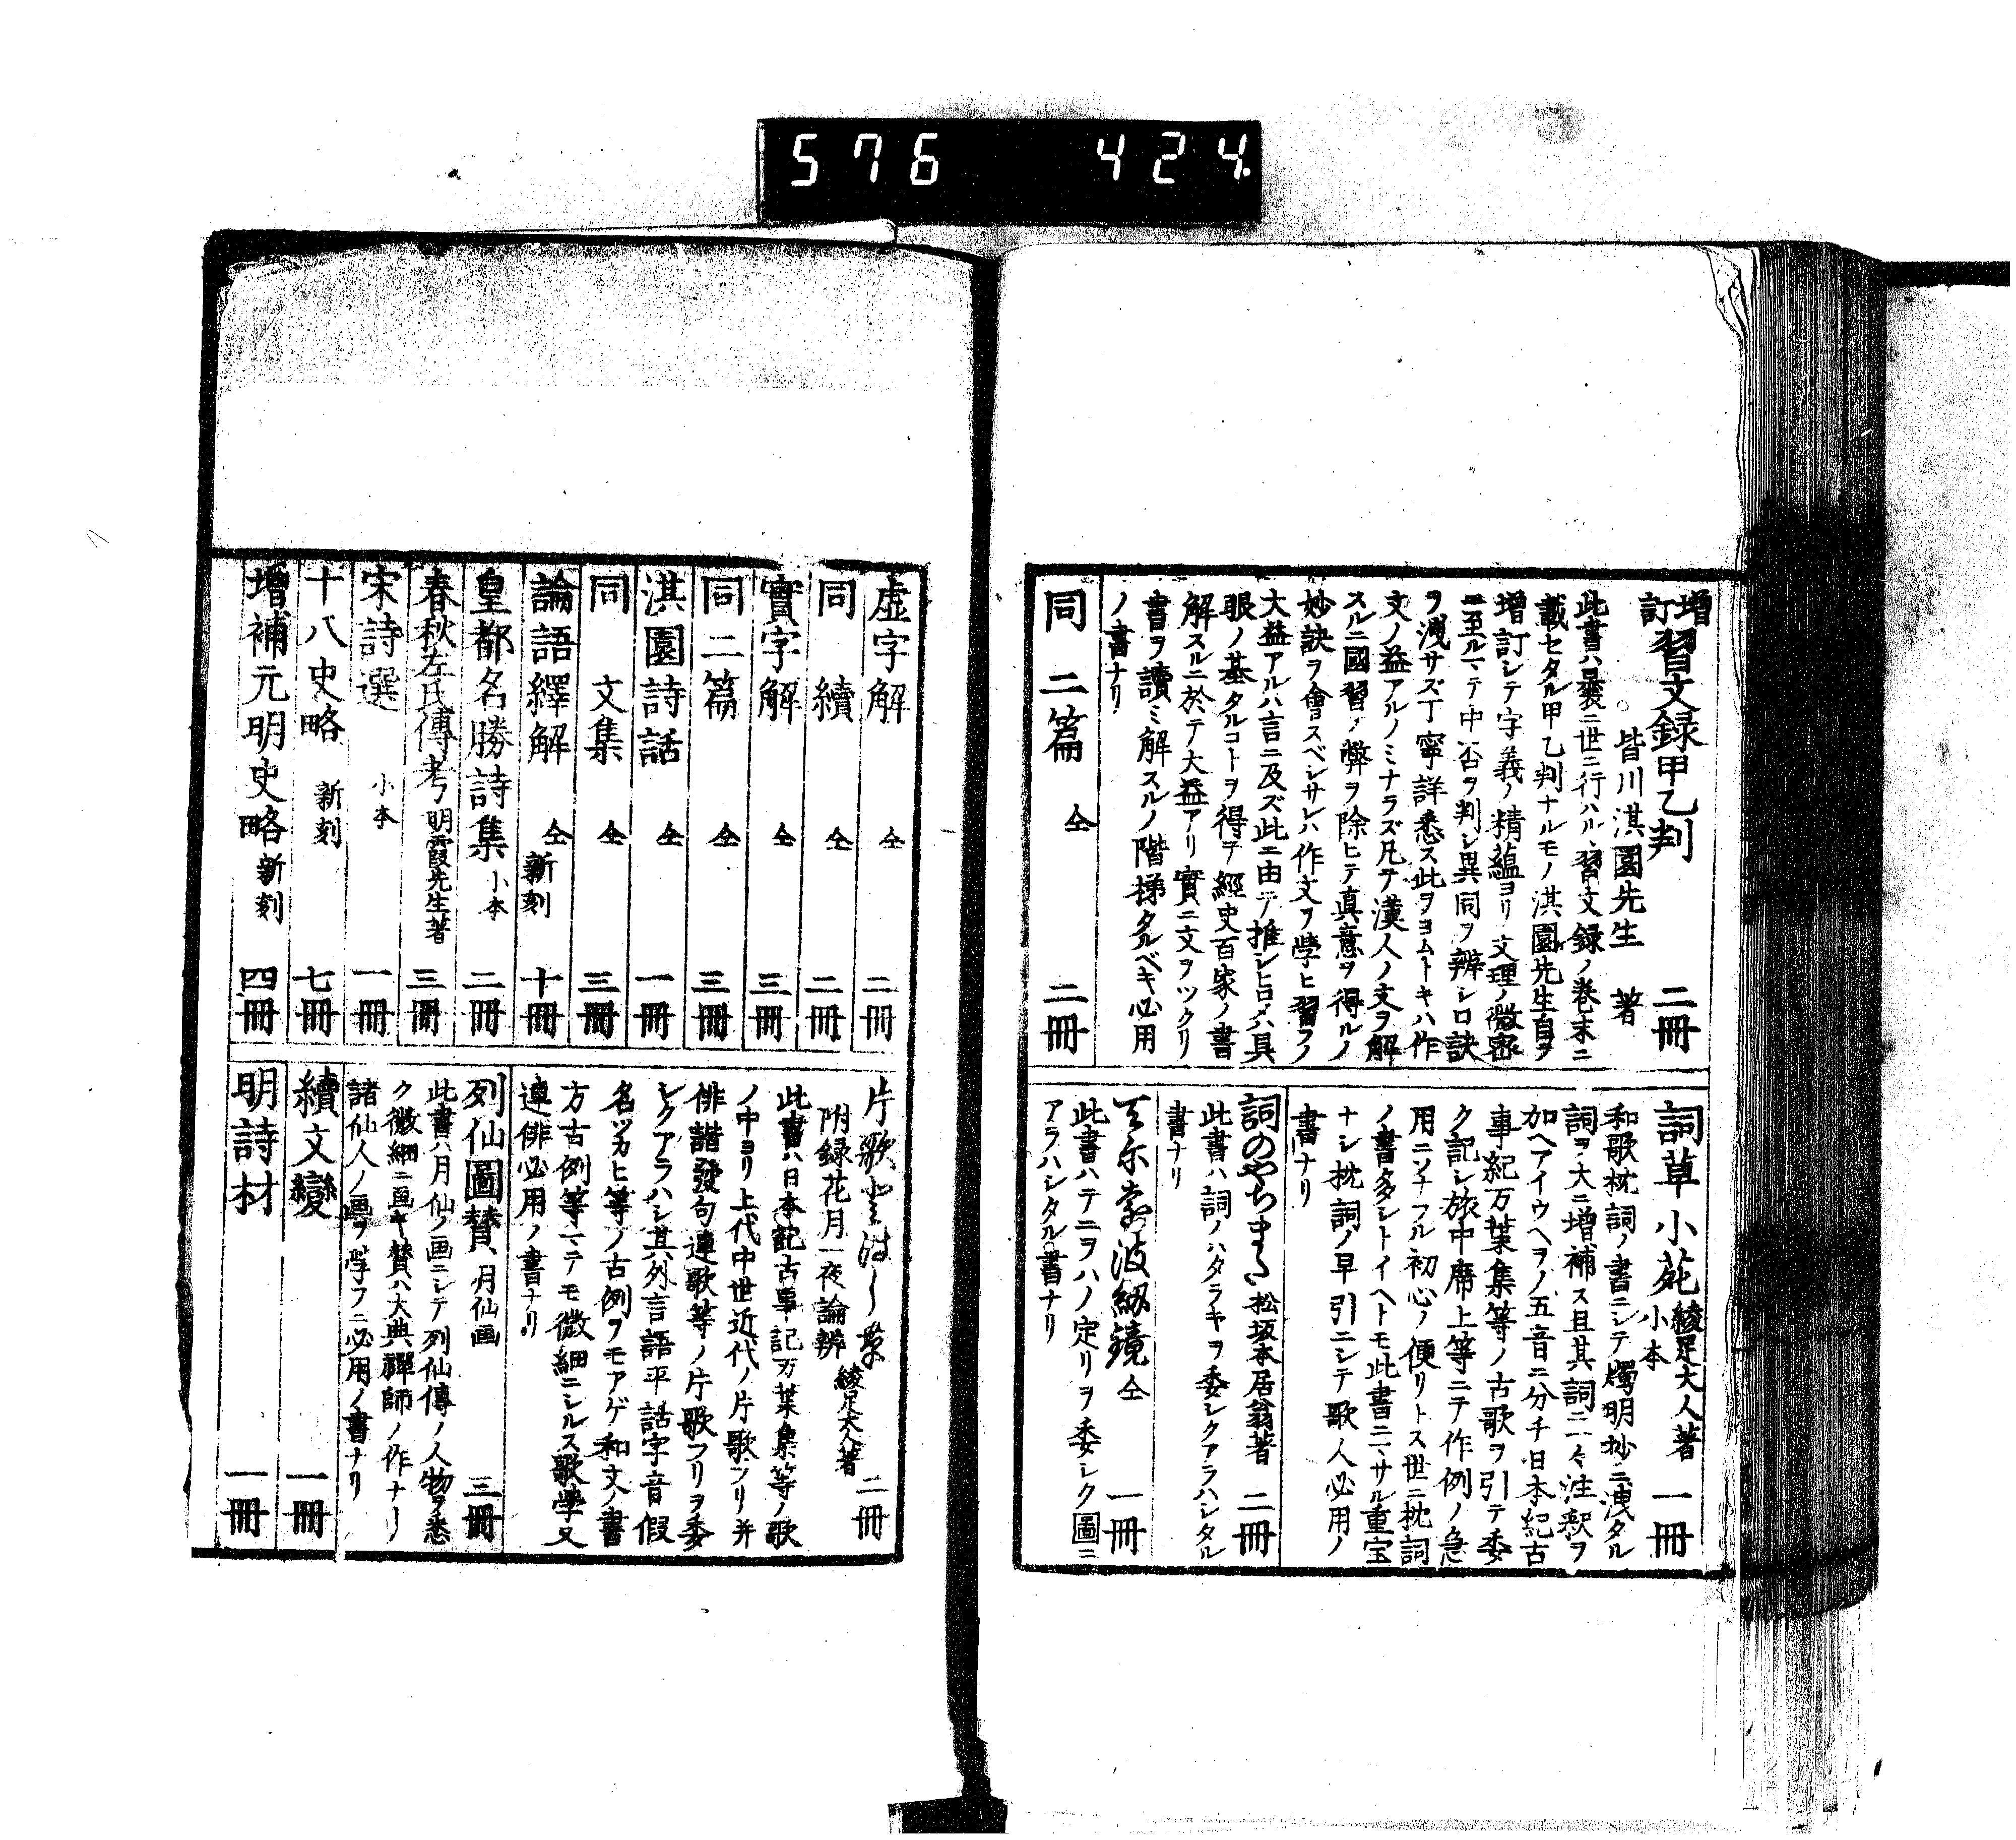 576 424.
増訂習文録甲乙判 二冊
皆川淇園先生 著
此書ハ曩ニ世ニ行ハルヽ習文録ノ巻末ニ
載セタル甲乙判ナルモノ淇園先生自ヲ
増訂シテ字義ノ精蘊ヨリ文理ノ微密
ニ至ルマテ中否ヲ判シ異同ヲ辨シ口訣
ヲ洩サズ丁寧詳悉ス此ヲヨムトキハ作
文ノ益アルノミナラズ凡テ漢人ノ文ヲ解
スルニ國習ノ弊ヲ除ヒテ真意ヲ得ルノ
妙訣ヲ會スベシサレハ作文ヲ学ヒ習フノ
大益アルハ言ニ及ズ此ニ由テ推シヒロメハ具
眼ノ基タルコトヲ得テ經史百家ノ書
解スルニ於テ大益アリ實ニ文ヲツクリ
書ヲ讀ミ解スルノ階梯タルベキ必用
ノ書ナリ
同 二篇 仝 二冊
詞草小苑 綾足大人著 小本 一冊
和歌枕詞ノ書ニシテ燭明抄ニ洩タル
詞ヲ大ニ増補ス且其詞ニ々注釈ヲ
加ヘアイウヘヲノ五音ニ分チ日本紀古
事紀万葉集等ノ古歌ヲ引テ委
ク記シ旅中席上等ニテ作例ノ急
用ニソナフル初心ノ便リトス世ニ枕詞
ノ書多シトイヘトモ此書ニマサル重宝
ナシ枕詞ノ早引ニシテ歌人必用ノ
書ナリ
詞のやちまた 松坂本居翁著 二冊
此書ハ詞ノハタラキヲ委シクアラハシタル
書ナリ
てにをは紐鏡 仝 一冊
此書ハテニヲハノ定リヲ委シク圖ニ
アラハシタル書ナリ
虚字解 仝 二冊
同 續 仝 二冊
實字解 仝 三冊
同二篇 仝 三冊
淇園詩話 仝 一冊
同 文集 仝 三冊
論語繹解 仝 新刻 十冊
皇都名勝詩集 小本 二冊
春秋左氏傳考 明霞先生著 三冊
宋詩選 小本 一冊
十八史略 新刻 七冊
増補元明史略 新刻 四冊
片歌 二冊
附録花月一夜論辨 綾足大人著
此書ハ日本記古事記万葉集等ノ歌
ノ中ヨリ上代中世近代ノ片歌ブリ并
俳諧發句連歌等ノ片歌フリヲ委
シクアラハシ其外言語平話字音假
名ツカヒ等ノ古例ヲモアゲ和文ノ書
方古例等マテモ微細ニシルス歌學又
連俳必用ノ書ナリ
列仙圖賛 月仙画 三冊
此書ハ月仙ノ画ニシテ列仙傳ノ人物ヲ悉
ク微細ニ画キ賛ハ大典禅師ノ作ナリ
諸仙人ノ画ヲ学フニ必用ノ書ナリ
續文變 一冊
明詩材 一冊